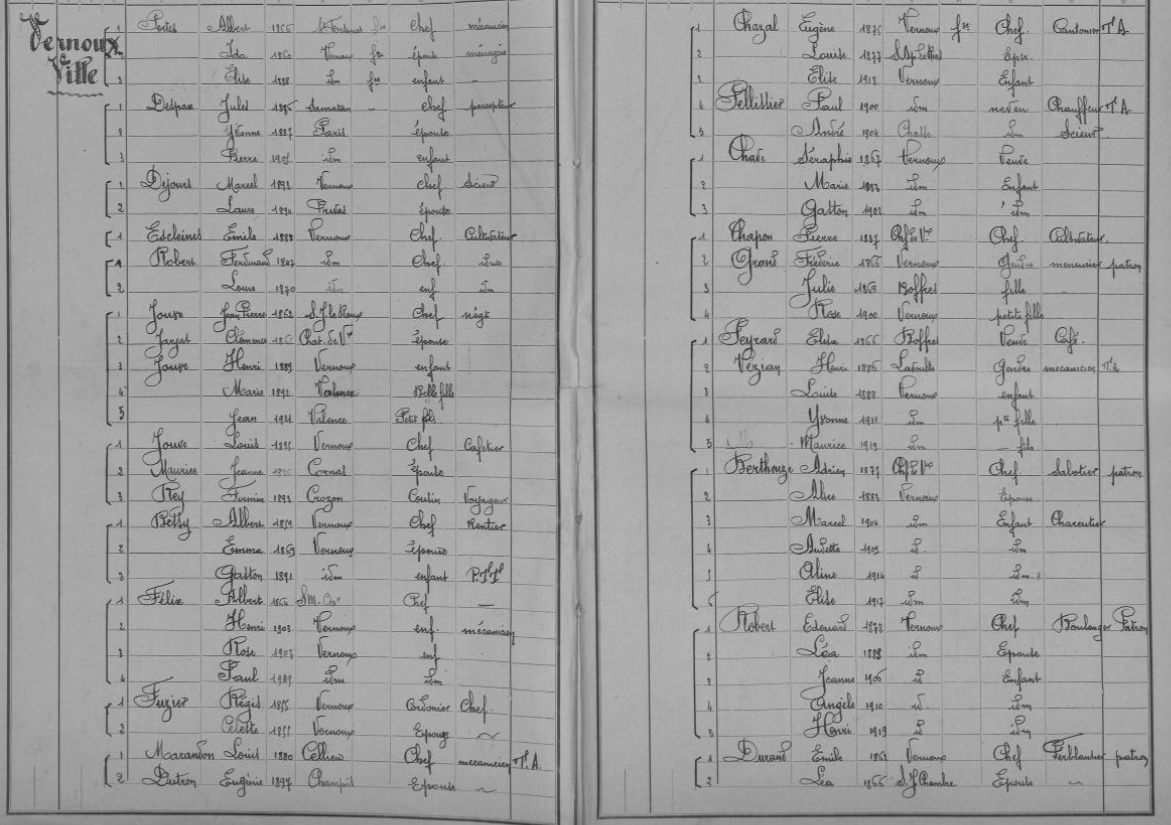 Vernoux
Ville
1 Portes Albert 1866 fse Chef mécanicien
Ida 1860 Vernoux fse épouse ménagère
3 Elise 1888 idm fse enfant -
1 Despax Jules 1895 Samatan - chef percepteur
2 Yvonne 1887 Paris épouse
3 Pierre 1905 idm enfant
1 Dejours Marcel 1892 Vernoux chef Scieur
2 Laure 1894 épouse
1 Escleines Emile 1888 Vernoux Chef Cultivateur
1 Robert Ferdinand 1847 idm Chef idm
2 Louis 1870 idm enf idm
1 Jouve Jean Pierre 1862 Chef négt
2 Jarjat Clémence Chat. de Vx épouse
3 Jouve Henri 1889 Vernoux enfant
4 Marie 1892 Valence Belle fille
5 Jean 1921 Valence Petit fils
1 Jouve Louis Vernoux Chef Cafetier
2 Maurice Jeanne Cornas épouse
3 Rey Firmin 1892 Crozon Cousin Voyageur
1 Betty Albert 1859 Vernoux Chef Rentier
2 Emma 1869 Vernoux épouse
3 Gaston 1891 idm enfant P.T.T
1 Félix Albert Chef —
2 Henri 1903 Vernoux enf. mécanicien
3 Rose 1907 Vernoux enf
4 Paul 1909 idm idm
1 Fuzier Régis 1855 Vernoux Cordonier Chef.
2 Celette 1855 Vernoux Epouse
1 Marandon Louis 1880 Cellieu Chef mecanicien T.A.
2 Eugénie 1897 Epouse
1 Chazal Eugène 1875 Vernoux fse Chef Cantonier T.A
2 Louise 1877 Epse
3 Elise 1912 Vernoux Enfant
4 Pellissier Paul 1900 idm neveu Chauffeur T.A
5 André 1904 idm Scieur
1 Séraphie 1867 Vernoux Veuve
2 Marie idm Enfant
3 Gaston 1902 idm idm
1 Chapon Pierre 1837 Chef Cultivateur
2 Grand Frédéric 1866 Vernoux Gendre menuisier patron
3 Julie 1869 Boffres fille
4 Rose 1900 Vernoux petite fille
1 Peyrard Elisa 1866 Boffres Veuve Café.
2 Vezian Henri 1886 Gendre mecanicien T.A
3 Louise 1888 Vernoux enfant
4 Yvonne 1911 idm pte fille
5 Maurice 1912 idm — fils
1 Berthouze Adrien 1877 Chef Sabotier patron
2 1883 Vernoux Epouse
3 Marcel 1904 idm Enfant Charcutier
4 1909 id idm
5 Aline 1914 id idm
6 Elise 1917 idm idm
1 Robert Edouard 1878 Vernoux Chef Boulanger Patron
2 Léa 1889 idm Epouse
3 Jeanne 1906 id Enfant
4 Angèle 1910 id idm
5 Henri 1919 id idm
1 Durand Emile 1862 Vernoux Chef Ferblantier patron
2 Léa 1866 Epouse